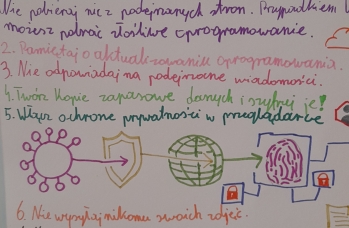 Nie pobieraj nic z podejrzanych stron. Przypadkiem
możesz pobrać złośliwe oprogramowanie.
2. Pamiętaj o aktualizowaniu oprogramowania.
3. Nie odpowiadaj na podejrzane wiadomości.
4. Twórz kopie zapasowe danych i szyfruj je!
5. Włącz ochronę prywatności w przeglądarce
6. Nie wysyłaj nikomu swoich zdjęć.